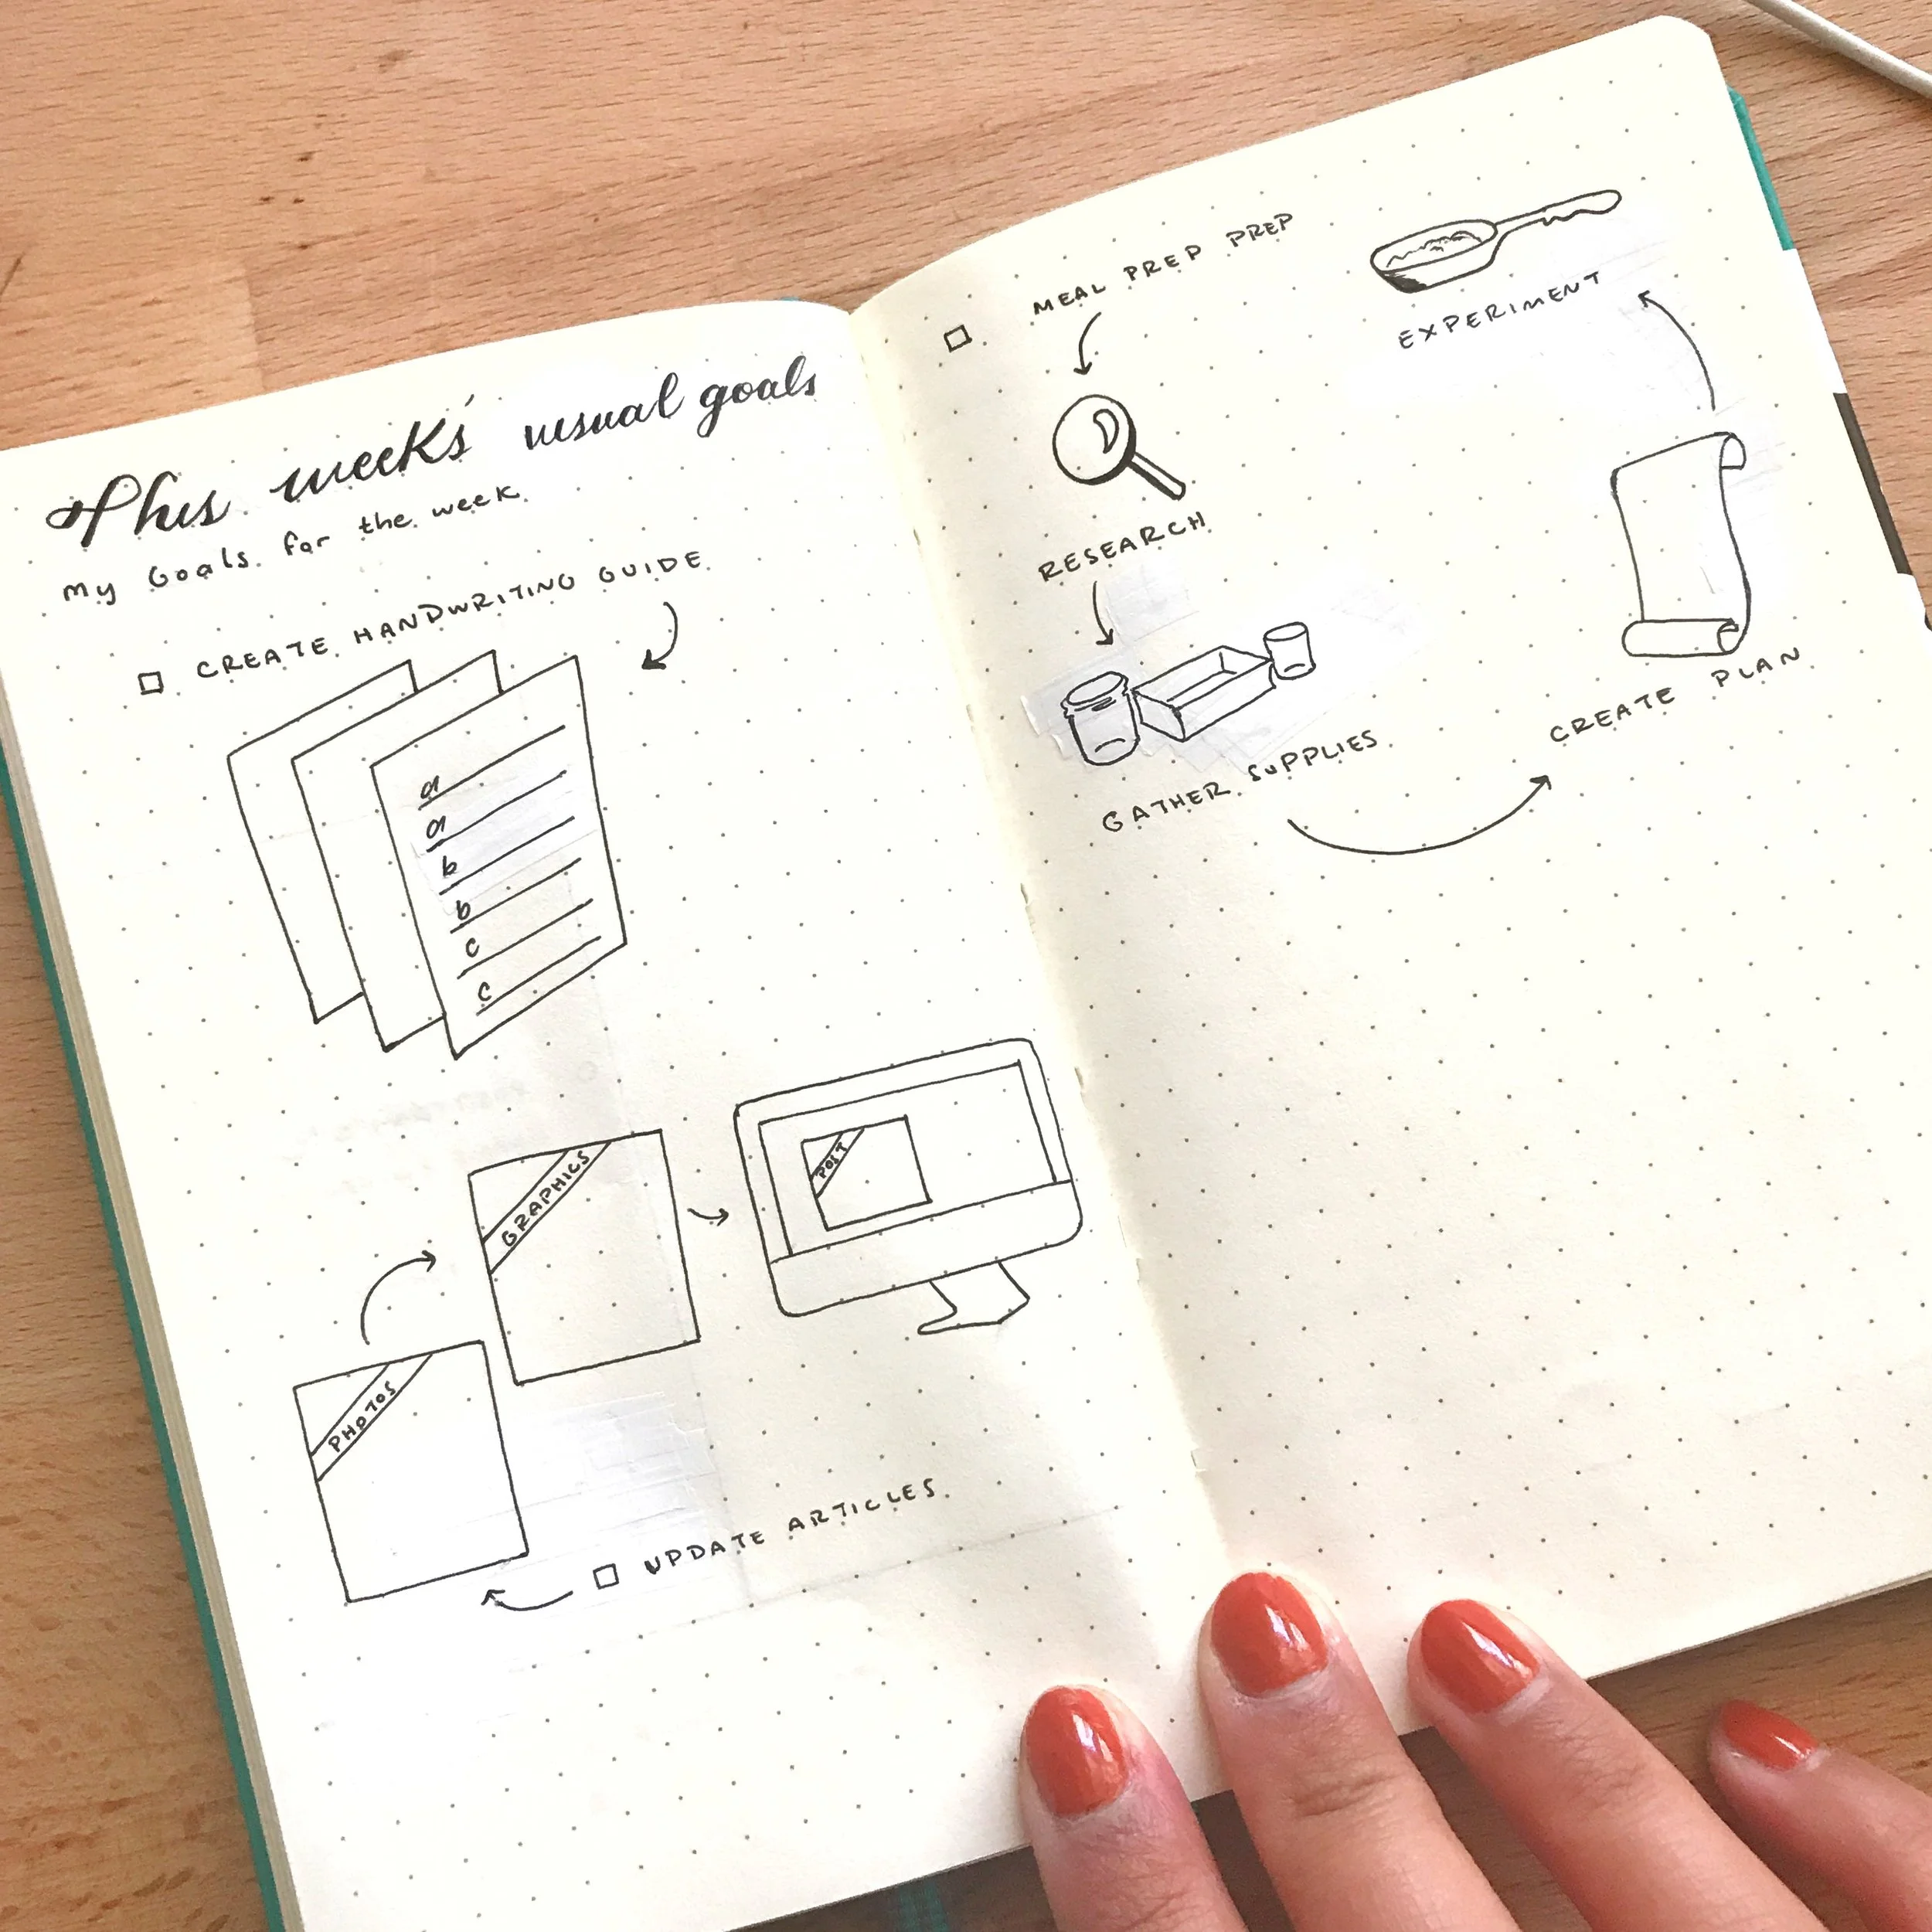 This week's visual goals
My Goals for the week
CREATE HANDWRITING GUIDE
a
a
b
b
c
c
GRAPHICS
POST
PHOTOS
UPDATE ARTICLES
MEAL PREP PREP
RESEARCH
GATHER SUPPLIES
CREATE PLAN
EXPERIMENT